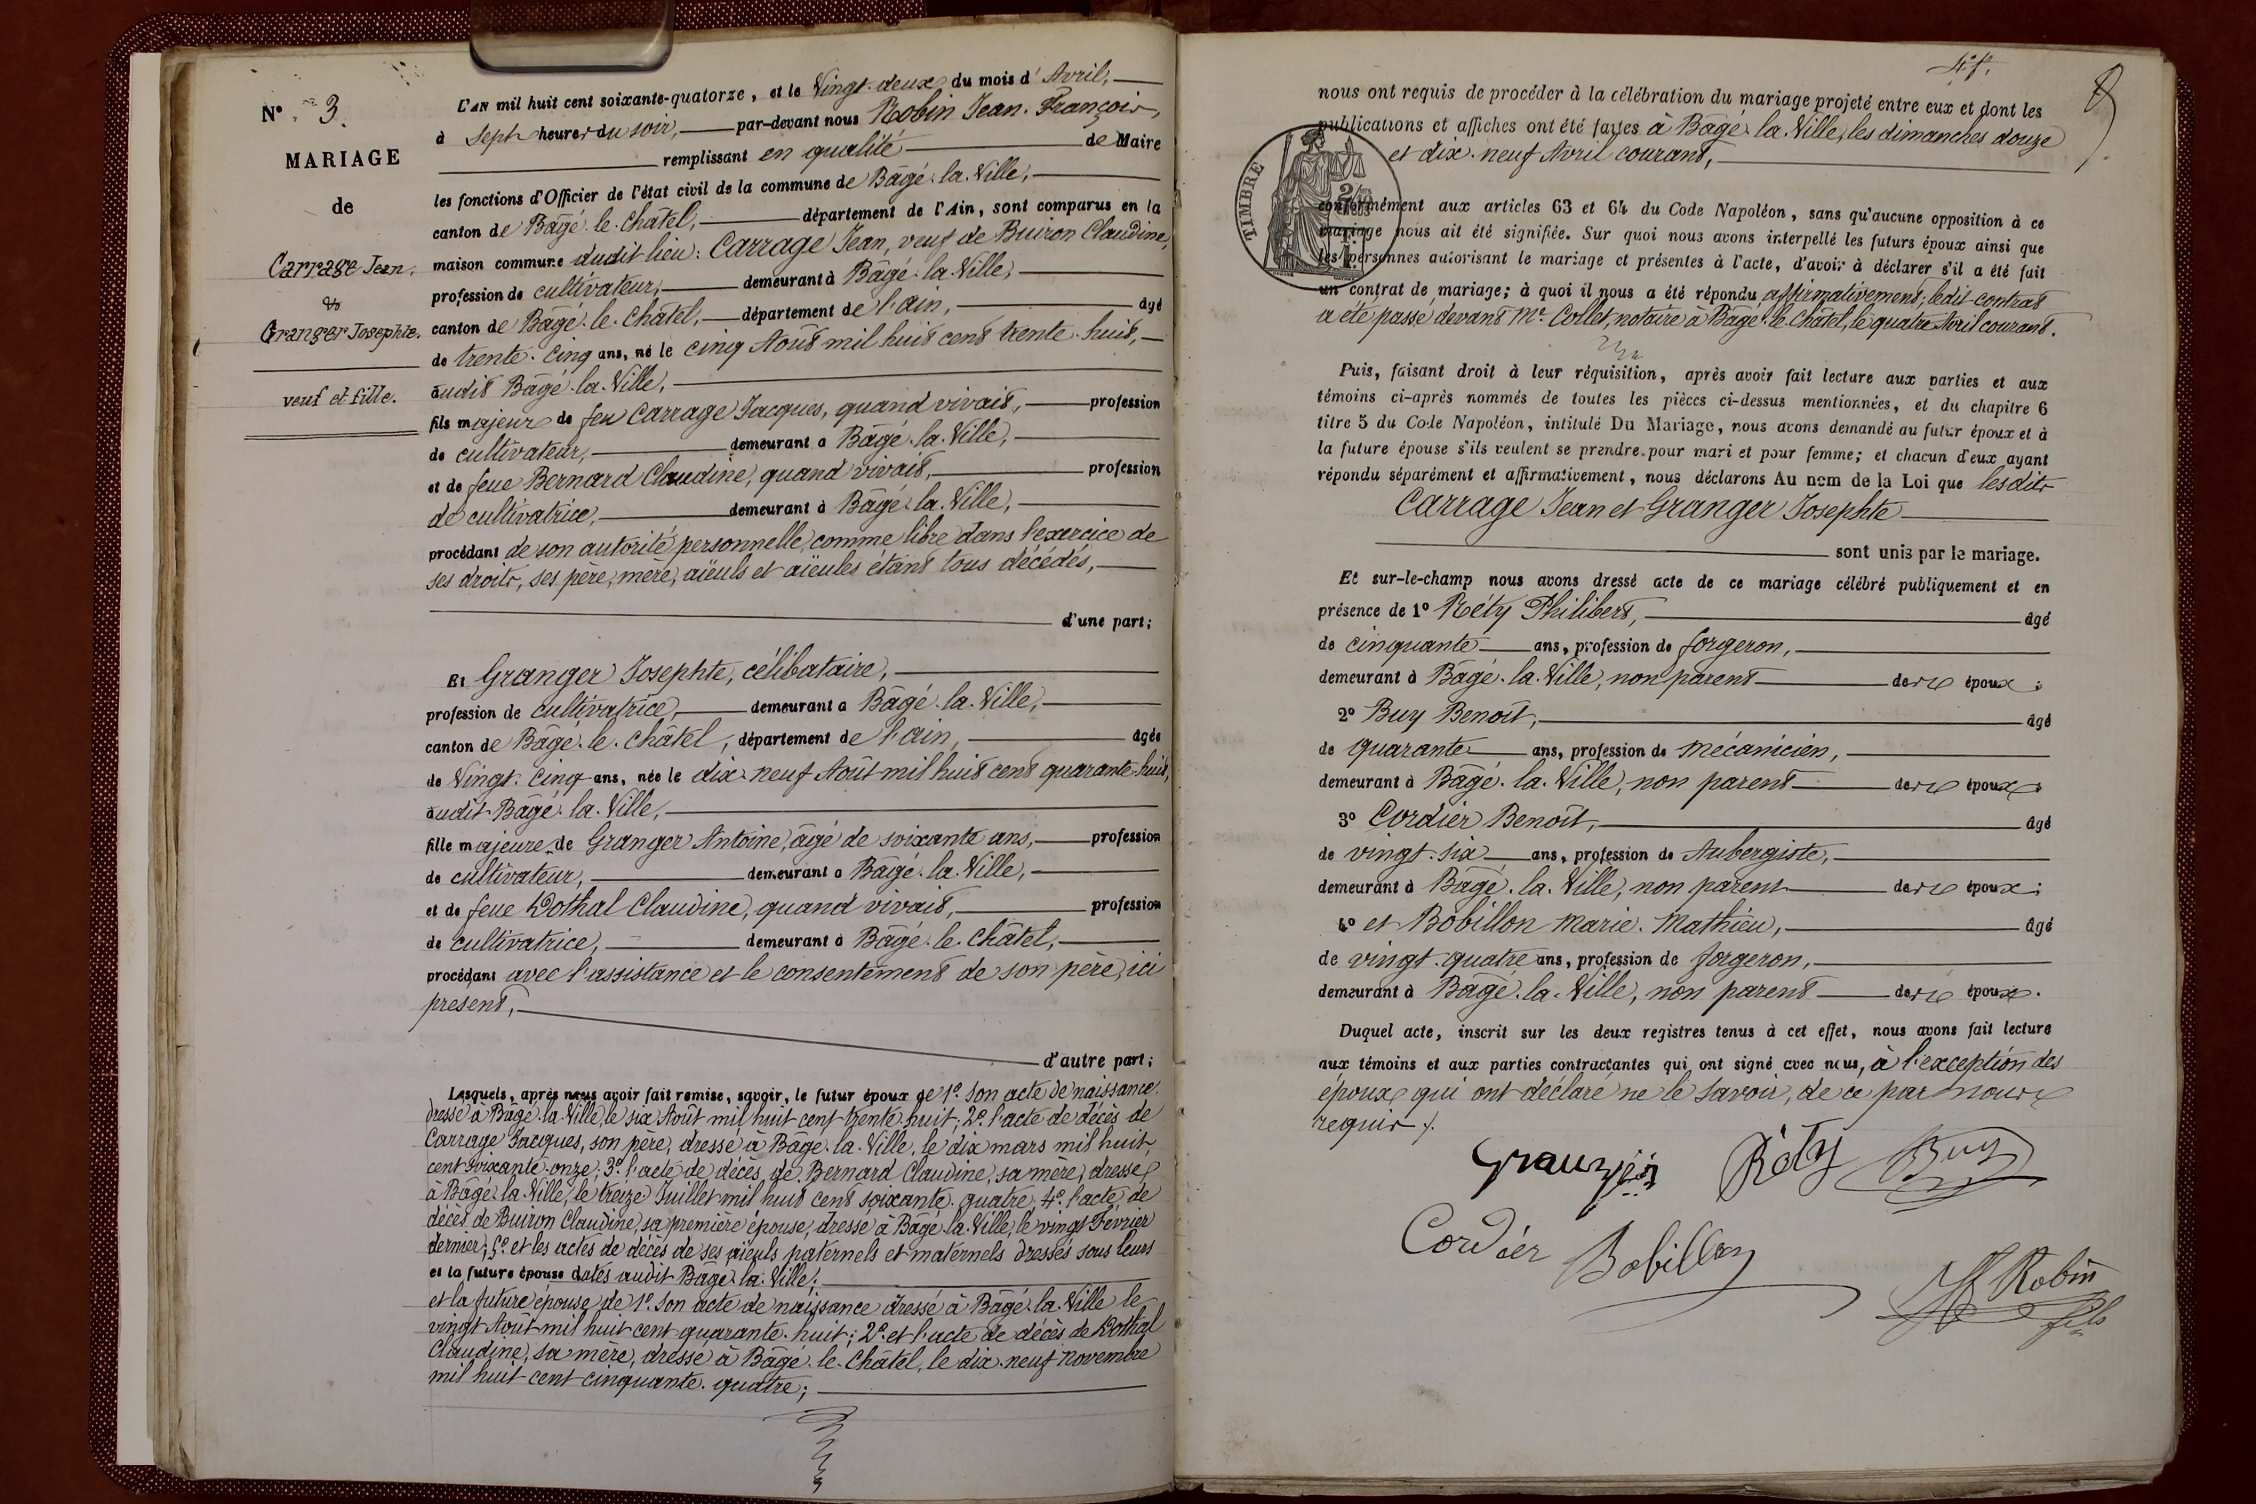 N° 3.
MARIAGE
de
Carrage Jean.
&
Granger Josephte.
veuf et fille.
L'AN mil huit cent soixante-quatorze, et le Vingt-deux du mois d'Avril,
à Sept heures du soir, par-devant nous Robin Jean-François,
remplissant en qualité de Maire
les fonctions d'Officier de l'état civil de la commune de Bâgé-la-Ville,
canton de Bâgé-le-Châtel, département de l'Ain, sont comparus en la
maison commune dudit lieu: Carrage Jean, veuf de Buiron Claudine,
profession de cultivateur, demeurant à Bâgé-la-Ville,
canton de Bâgé-le-Châtel, département de l'ain, âgé
de trente-Cinq ans, né le cinq Août mil huit cent trente-huit,
audit Bâgé-la-Ville,
fils majeur de feu Carrage Jacques, quand vivait, profession
de cultivateur, demeurant à Bâgé-la-Ville,
et de feue Bernard Claudine, quand vivait, profession
de cultivatrice, demeurant à Bâgé-la-Ville,
procédant de son autorité personnelle comme libre dans l'exercice de
ses droits, ses père, mère, aïeuls et aïeules étant tous décédés,
d'une part;
Et Granger Josephte, célibataire,
profession de cultivatrice, demeurant à Bâgé-la-Ville,
canton de Bâgé-le-Châtel, département de l'ain, âgée
de Vingt-Cinq ans, née le dix-neuf Août mil huit cent quarante-huit,
audit Bâgé-la-Ville,
fille majeure de Granger Antoine, âgé de soixante ans, profession
de cultivateur, demeurant à Bâgé-la-Ville,
et de feue Dothal Claudine, quand vivait, profession
de cultivatrice, demeurant à Bâgé-le-Châtel,
procédant avec l'assistance et le consentement de son père, ici
present,
d'autre part;
Lesquels, après nous avoir fait remise, savoir, le futur époux de 1° Son acte de naissance
dressé à Bâgé-la-Ville, le six Août mil huit cent trente-huit; 2° l'acte de décès de
Carrage Jacques, son père, dressé à Bâgé-la-Ville, le dix mars mil huit
cent soixante-onze; 3° l'acte de décès de Bernard Claudine, sa mère, dressé
à Bâgé-la-Ville, le treize Juillet mil huit cent soixante-quatre; 4° l'acte de
décès de Buiron Claudine, sa première épouse, dressé à Bâgé-la-Ville, le vingt Février
dernier; 5° et les actes de décès de ses aïeuls paternels et maternels dressés sous leurs
et la future épouse datés audit Bâgé-la-Ville;
et la future épouse de 1° Son acte de naissance dressé à Bâgé-la-Ville le
vingt Août mil huit cent quarante-huit; 2° et l'acte de décès de Dothal
Claudine, sa mère, dressé à Bâgé-le-Châtel, le dix-neuf novembre
mil huit cent cinquante-quatre;
nous ont requis de procéder à la célébration du mariage projeté entre eux et dont les
publications et affiches ont été faites à Bâgé-la-Ville, les dimanches douze
et dix-neuf Avril courant,
TIMBRE
conformément aux articles 63 et 64 du Code Napoléon, sans qu'aucune opposition à ce
mariage nous ait été signifiée. Sur quoi nous avons interpellé les futurs époux ainsi que
les personnes autorisant le mariage et présentes à l'acte, d'avoir à déclarer s'il a été fait
un contrat de mariage; à quoi il nous a été répondu affirmativement; ledit contrat
a été passé devant Me. Collet, notaire à Bâgé-le-Châtel, le quatre Avril courant.
Puis, faisant droit à leur réquisition, après avoir fait lecture aux parties et aux
témoins ci-après nommés de toutes les pièces ci-dessus mentionnées, et du chapitre 6
titre 5 du Code Napoléon, intitulé Du Mariage, nous avons demandé au futur époux et à
la future épouse s'ils veulent se prendre pour mari et pour femme; et chacun d'eux ayant
répondu séparément et affirmativement, nous déclarons Au nom de la Loi que lesdits
Carrage Jean et Granger Josephte
sont unis par le mariage.
Et sur-le-champ nous avons dressé acte de ce mariage célébré publiquement et en
présence de 1° Réty Philibert, âgé
de cinquante ans, profession de forgeron,
demeurant à Bâgé-la-Ville, non parent des époux;
2° Buy Benoît, âgé
de quarante ans, profession de mécanicien,
demeurant à Bâgé-la-Ville, non parent des époux;
3° Cordier Benoît, âgé
de vingt-six ans, profession de Aubergiste,
demeurant à Bâgé-la-Ville, non parent des époux;
4° et Bobillon Marie-Mathieu, âgé
de vingt-quatre ans, profession de forgeron,
demeurant à Bâgé-la-Ville, non parent des époux.
Duquel acte, inscrit sur les deux registres tenus à cet effet, nous avons fait lecture
aux témoins et aux parties contractantes qui ont signé avec nous, à l'exception des
époux qui ont déclaré ne le savoir, de ce par nous
requis ./.
Réty Buy
Cordier Bobillon
Robin
fils